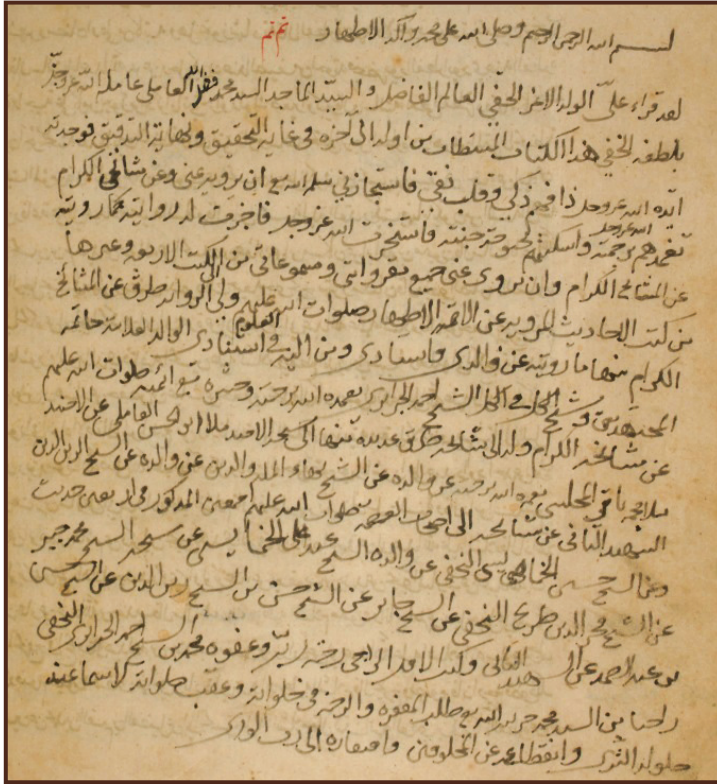 بسم الله الرحمن الرحيم وصلى الله على محمد وآله الاطهار
لقد قراء عليّ الولد الاعز الحفي العالم الفاضل والسيّد الماجد السيد محمد العاملي عامله الله عز وجل
بلطفه الخفي هذا الكتاب المستطاب من اوله الى آخره في غاية التحقيق ونهاية التدقيق فوجدته
ايّده الله عز وجل ذا فهم ذكي وقلب نقي فاستجازني سلمه الله ان يرويه عني وعن مشائخي الكرام
تغمدهم الله عز وجل برحمته واسكنهم جنته فاستخرت الله عز وجل فاجزت له روايته كما رويته
عن المشائخ الكرام وان يروى عني جميع مقرواتي ومسموعاتي من الكتب الاربعه وغيرها
من كتب الحاديث المرويه عن الائمه الاطهار صلوات الله عليهم ولي الى الروايه طرق عن المشائخ
الكرام منها ما رويته عن والدي واستادي ومن اليه في العلوم استنادي الوالد العلامة خاتمة
المجتهدين الشيخ احمد الجزائري تغمده الله برحمته وحشره مع ائمته صلوات الله عليهم
عن مشائخه الكرام وله الى مشائخه طرق عديدة منها الشيخ ملا ابو الحسن العاملي عن
ملا محمد باقر المجلسي عن والده عن الشيخ بهاء الملة والدين عن والده عن الشيخ زين الدين
الشهيد الثاني عن مشائخه الى اصحاب العصمه صلوات الله عليهم اجمعين المذكور في اربعين حديث
وعن الشيخ حسين النجفي عن والده الشيخ عبد علي عن شيخه الشيخ محمد جابر
عن الشيخ فخر الدين طريح النجفي عن الشيخ جابر عن الشيخ حسن بن الشيخ زين الدين عن الشيخ حسين
بن عبد الصمد عن الشهيد الثاني وكتب الاقل الراجي رحمة ربّه وعفوه محمد بن الشيخ احمد الجزائري النجفي
راجيا من السيد محمد طلب المغفره والرحمة في خلواته وعقب صلواته لا سيما عند
حلوله الثرى وانقطاعه عن المخلوقين وافتقاره الى رب